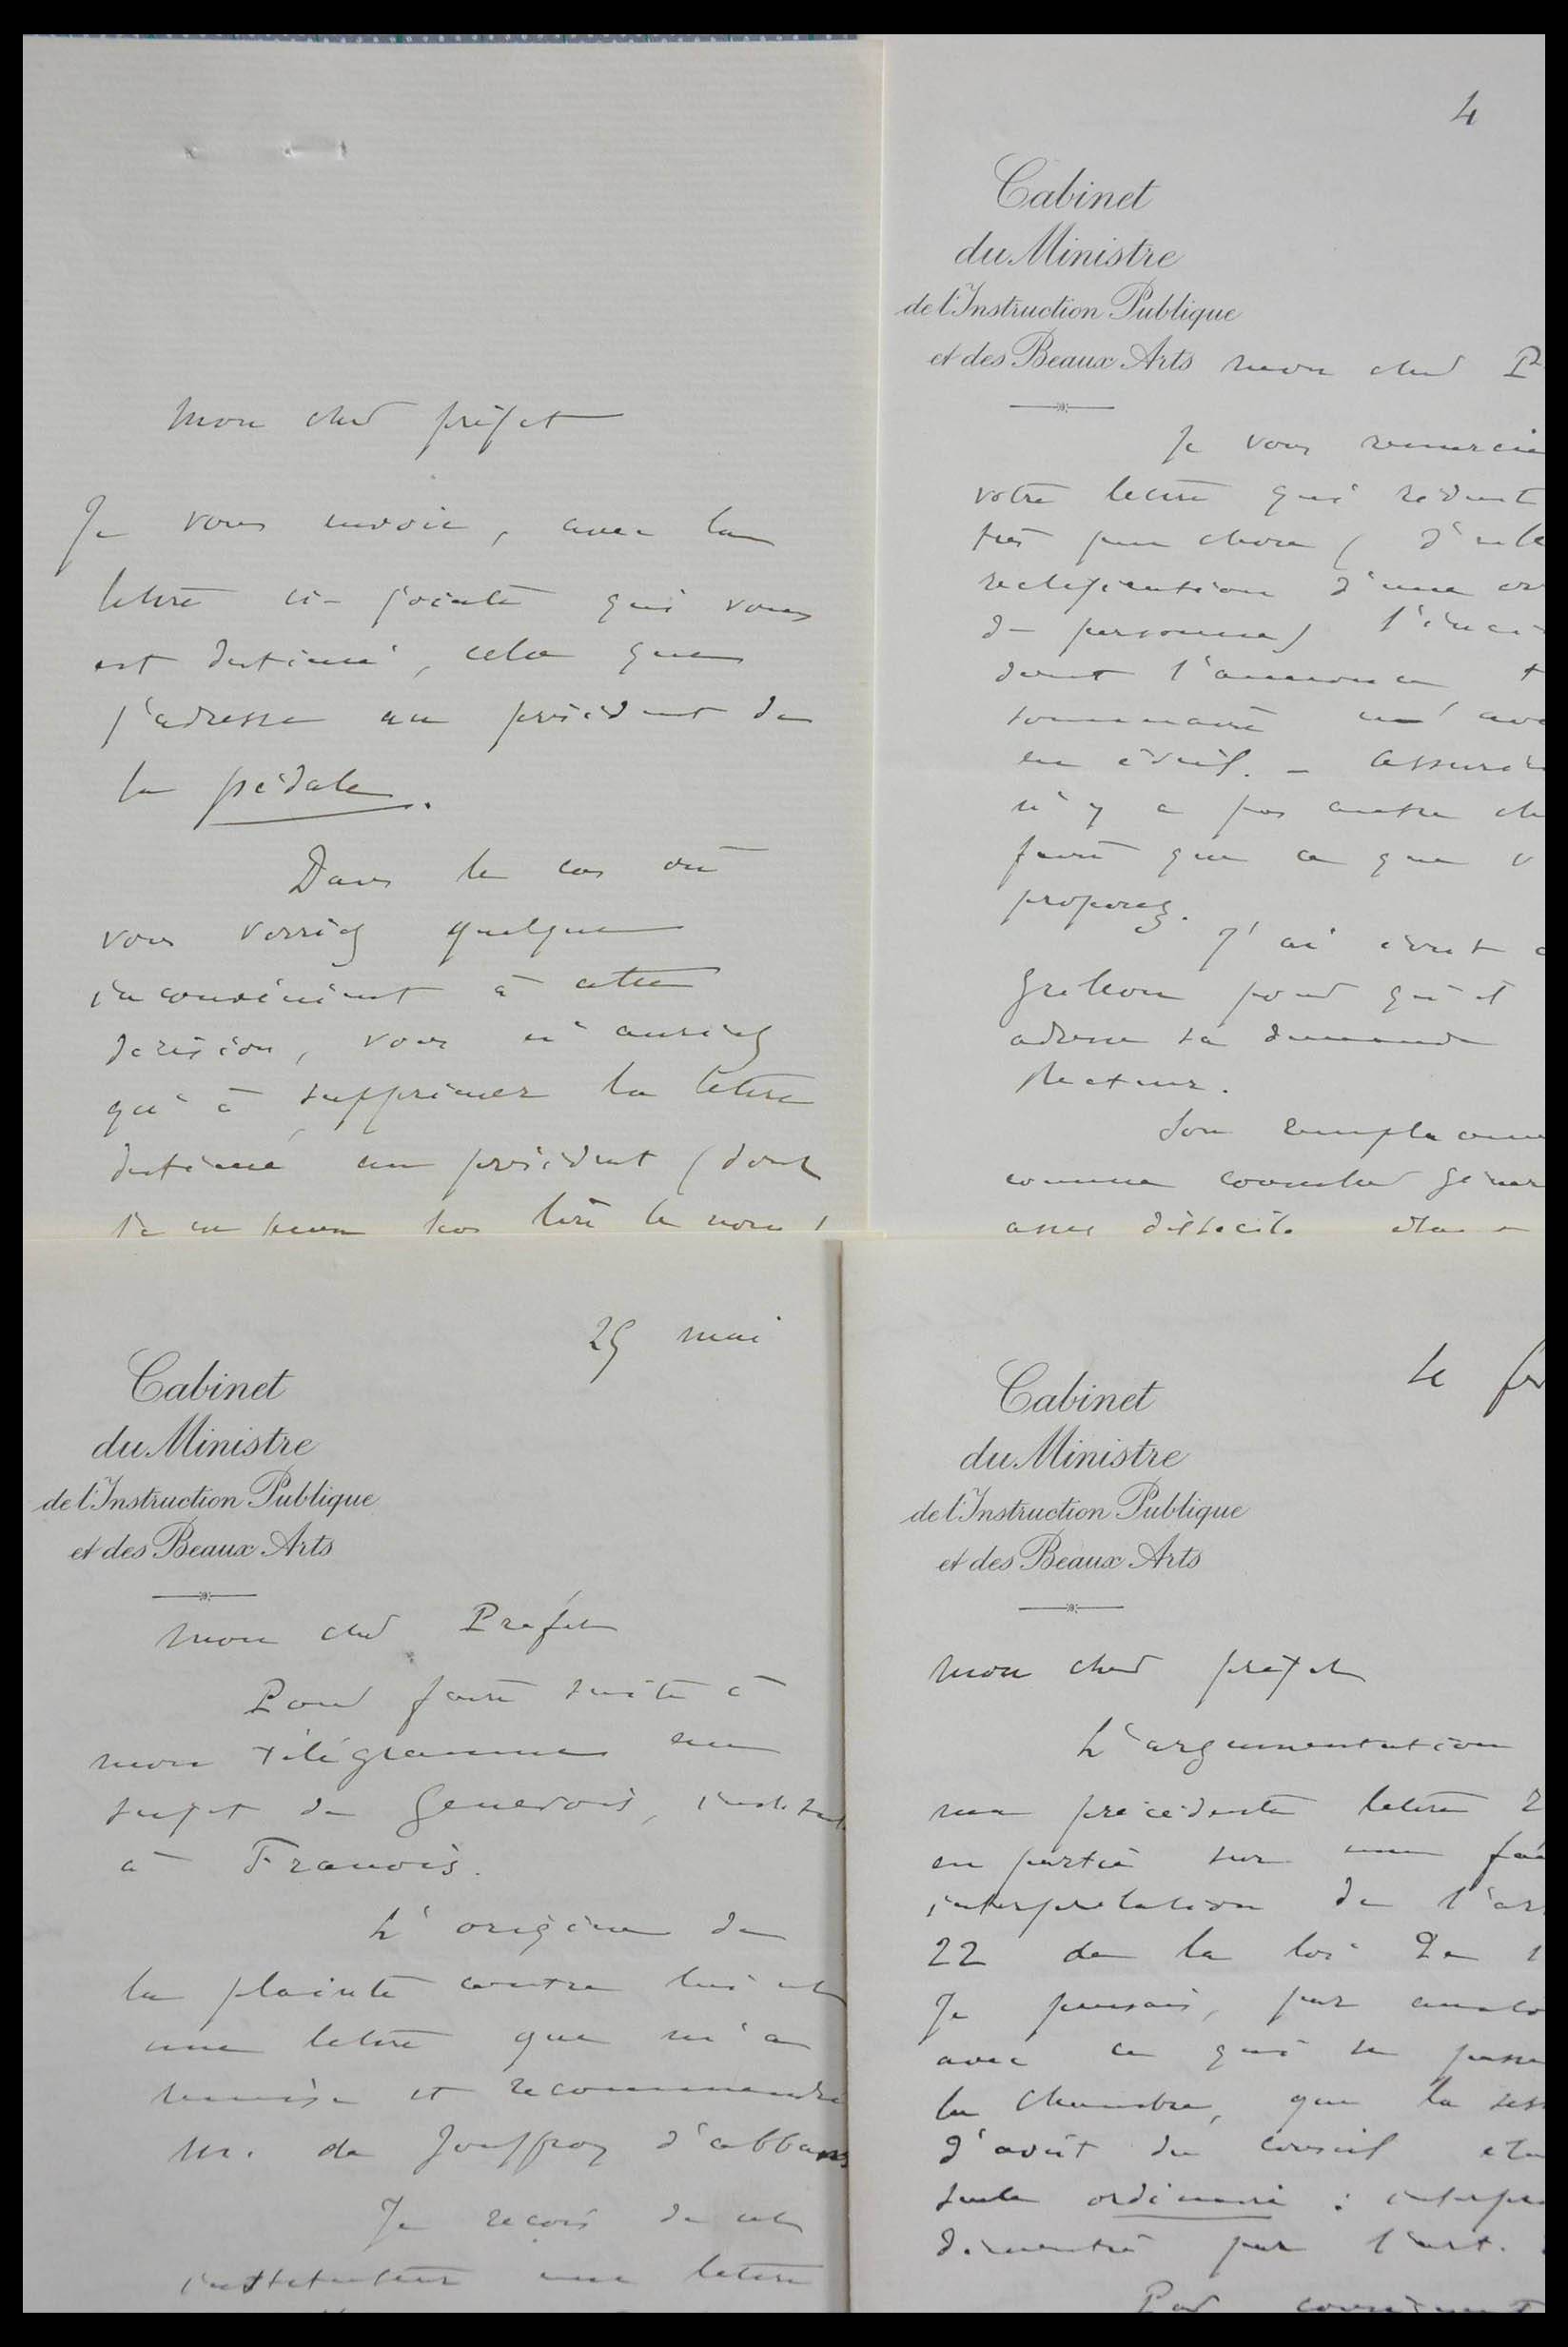 Mon cher préfet
Je vous envoie, avec la
lettre ci-jointe qui vous
est destinée, celle que
j'adresse au président de
la pédale.
Dans le cas où
vous verriez quelque
inconvénient à cette
décision, vous n'auriez
qu'à supprimer la lettre
destinée au président (dont
je ne peux pas lire le nom)
4
Cabinet
du Ministre
de l'Instruction Publique
et des Beaux Arts
mon cher P
Je vous remercie
votre lettre qui réduit
très peu chose (
rectification d'une
de personne)
dont l'annonce
sommaire m'av
en éveil. -
n'y a pas autre ch
faire que ce que v
proposez.
J'ai écrit
Grellou pour qu'il
adresse sa demande
Recteur.
Son remplacem
comme conseiller géner
assez difficile
29 mai
Cabinet
du Ministre
de l'Instruction Publique
et des Beaux Arts
mon cher Préfet
Pour faire suite à
mon télégramme au
sujet de Genevois, instit
à Franois.
L'origine de
la plainte contre lui est
une lettre que m'a
remise et recommandée
M. de Jouffroy d'abbans
Je reçois de cet
instituteur une lettre
Le
Cabinet
du Ministre
de l'Instruction Publique
et des Beaux Arts
mon cher préfet
L'argumentation
ma précédente lettre
en partie sur une
interprétation de l'ar
22 de la loi de 1
Je pensais, par analo
avec ce qui se passe
la Chambre, que la sess
d'août du conseil
seule ordinaire : interpré
démentie par l'art.
Par conséquent